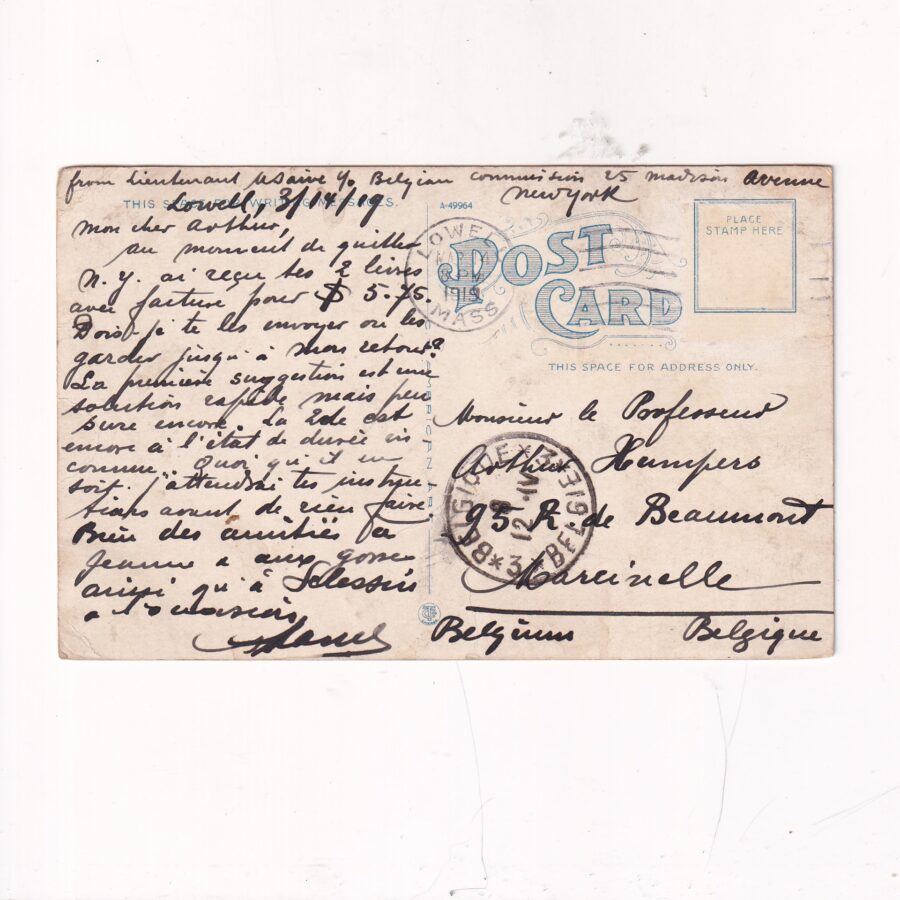 from Lieutenant c/o Belgian commission 25 Madison Avenue
New York
THIS SPACE FOR WRITING MESSAGES.
A-49964
Lowell, 3/14/19
Mon cher Arthur,
au moment de quitter
N.Y. ai reçu tes 2 livres
avec facture pour $ 5.75.
Dois-je te les envoyer ou les
garder jusqu'à mon retour?
La première suggestion est une
solution rapide mais peu
sure encore. La 2de est
encore à l'état de durée in
connue. Quoi qu'il en
soit j'attendrai tes instruc
tions avant de rien faire.
Bien des amitiés à
Jeanne & aux gosses
ainsi qu'à Sclessin
à l'occasion
LOWELL
1919
MASS
POST
CARD
PLACE
STAMP HERE
THIS SPACE FOR ADDRESS ONLY.
Monsieur le Professeur
Arthur Hempers
95 R de Beaumont
Marcinelle
Belgium Belgique
*BELGIQUE*3*BELGIE*3
12 IV